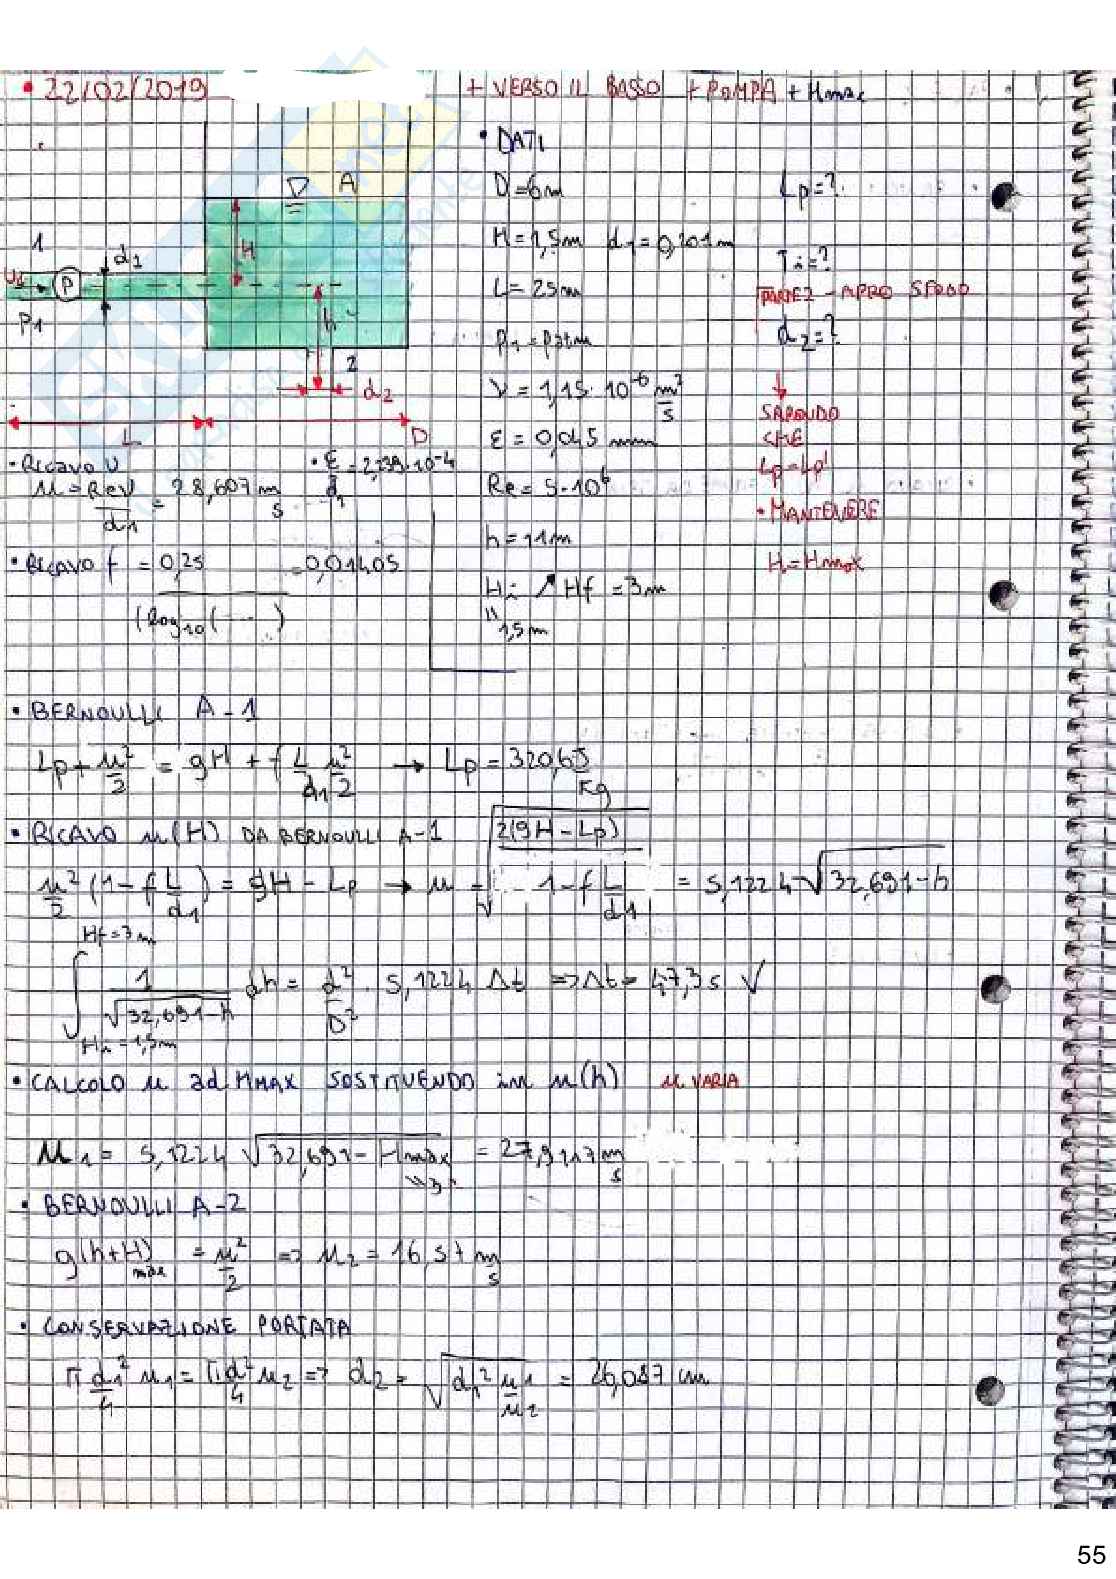 • 22/02/2019
+ VERSO IL BASSO + POMPA + Hmax
• DATI
D = 6m
H = 1,5m d1 = 0,201m
L = 25m
P1 = Patm
ν = 1,15 · 10^-6 m²/s
ε = 0,045 mm
Re = 5·10^6
h = 11m
Hi ↗ Hf = 3m
"
1,5m
Lp = ?
Ti = ?
PARTE 2 - APRO SFODO
d2 = ?
↓
SAPENDO
CHE
Lp = Lp'
• MANTENERE
H = Hmax
D A
1
d1
H
P
P1
h
2
d2
L D
• RICAVO U
u = Re ν / d1 = 28,607 m/s
• ε/d1 = 2,239·10^-4
• RICAVO f = 0,25 / (log10(---)) = 0,01405
• BERNOULLI A-1
Lp + u²/2 = gH + f L/d1 u²/2 → Lp = 320,6 J/Kg
• RICAVO u(H) DA BERNOULLI A-1
u²/2 (1 - f L/d1) = gH - Lp → u = √(2(gH - Lp) / (1 - f L/d1)) = 5,1224 √(32,691 - h)
Hf = 3m
∫ 1/√(32,691 - h) dh = d²/D² · 5,1224 Δt ⇒ Δt = 47,3s √
Hi = 1,5m
• CALCOLO u ad HMAX SOSTITUENDO in u(h) u VARIA
u1 = 5,1224 √(32,691 - Hmax) = 27,9117 m/s
"3"
• BERNOULLI A-2
g(h + Hmax) = u²/2 ⇒ u2 = 16,57 m/s
• CONSERVAZIONE PORTATA
π d1²/4 u1 = π d²/4 u2 ⇒ d2 = √(d1² u1/u2) = 26,087 cm
55